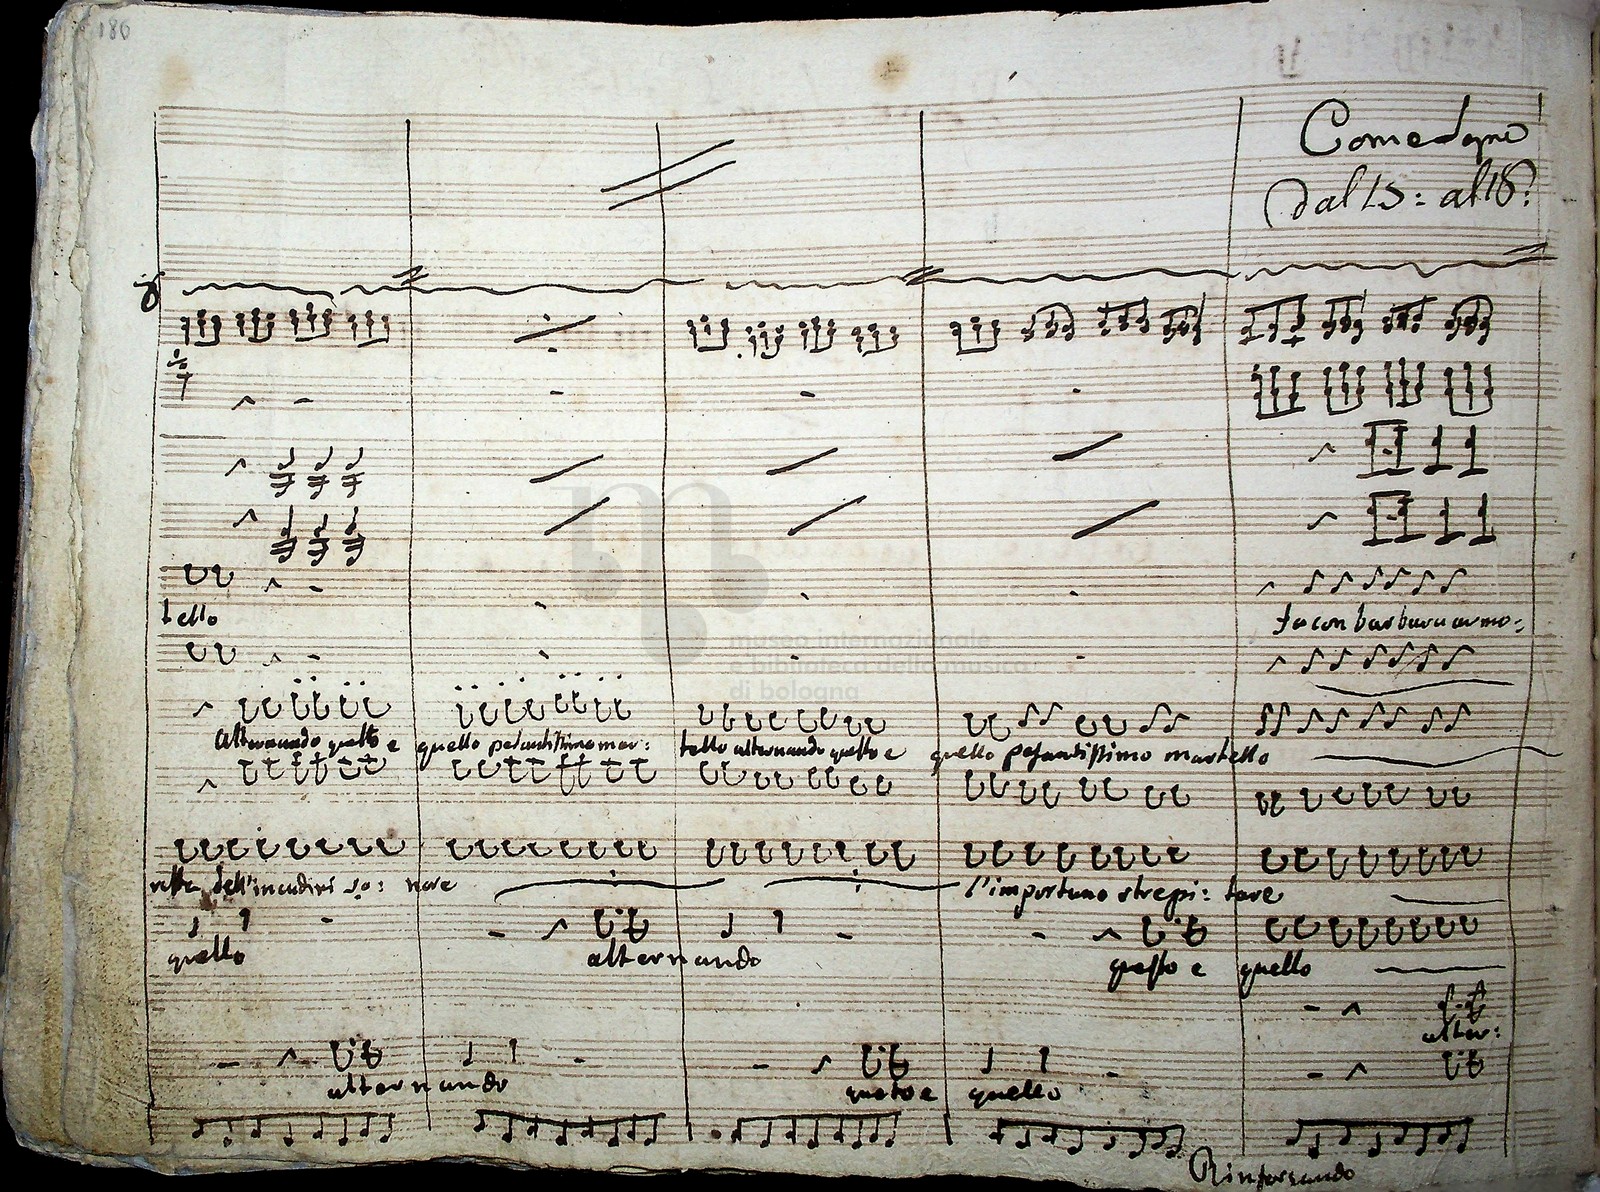 186
Come Sopra
dal 15: al 18:
tello
fa con barbara armo:
museo internazionale
biblioteca della musica
di bologna
Alternando questo e quello pesantissimo mar: tello alternando questo e quello pesantissimo martello
resta dell'incudini so: nore l'importuno strepi: tare
quello alternando questo e quello
alter:
alternando questo e quello
Rinforzando